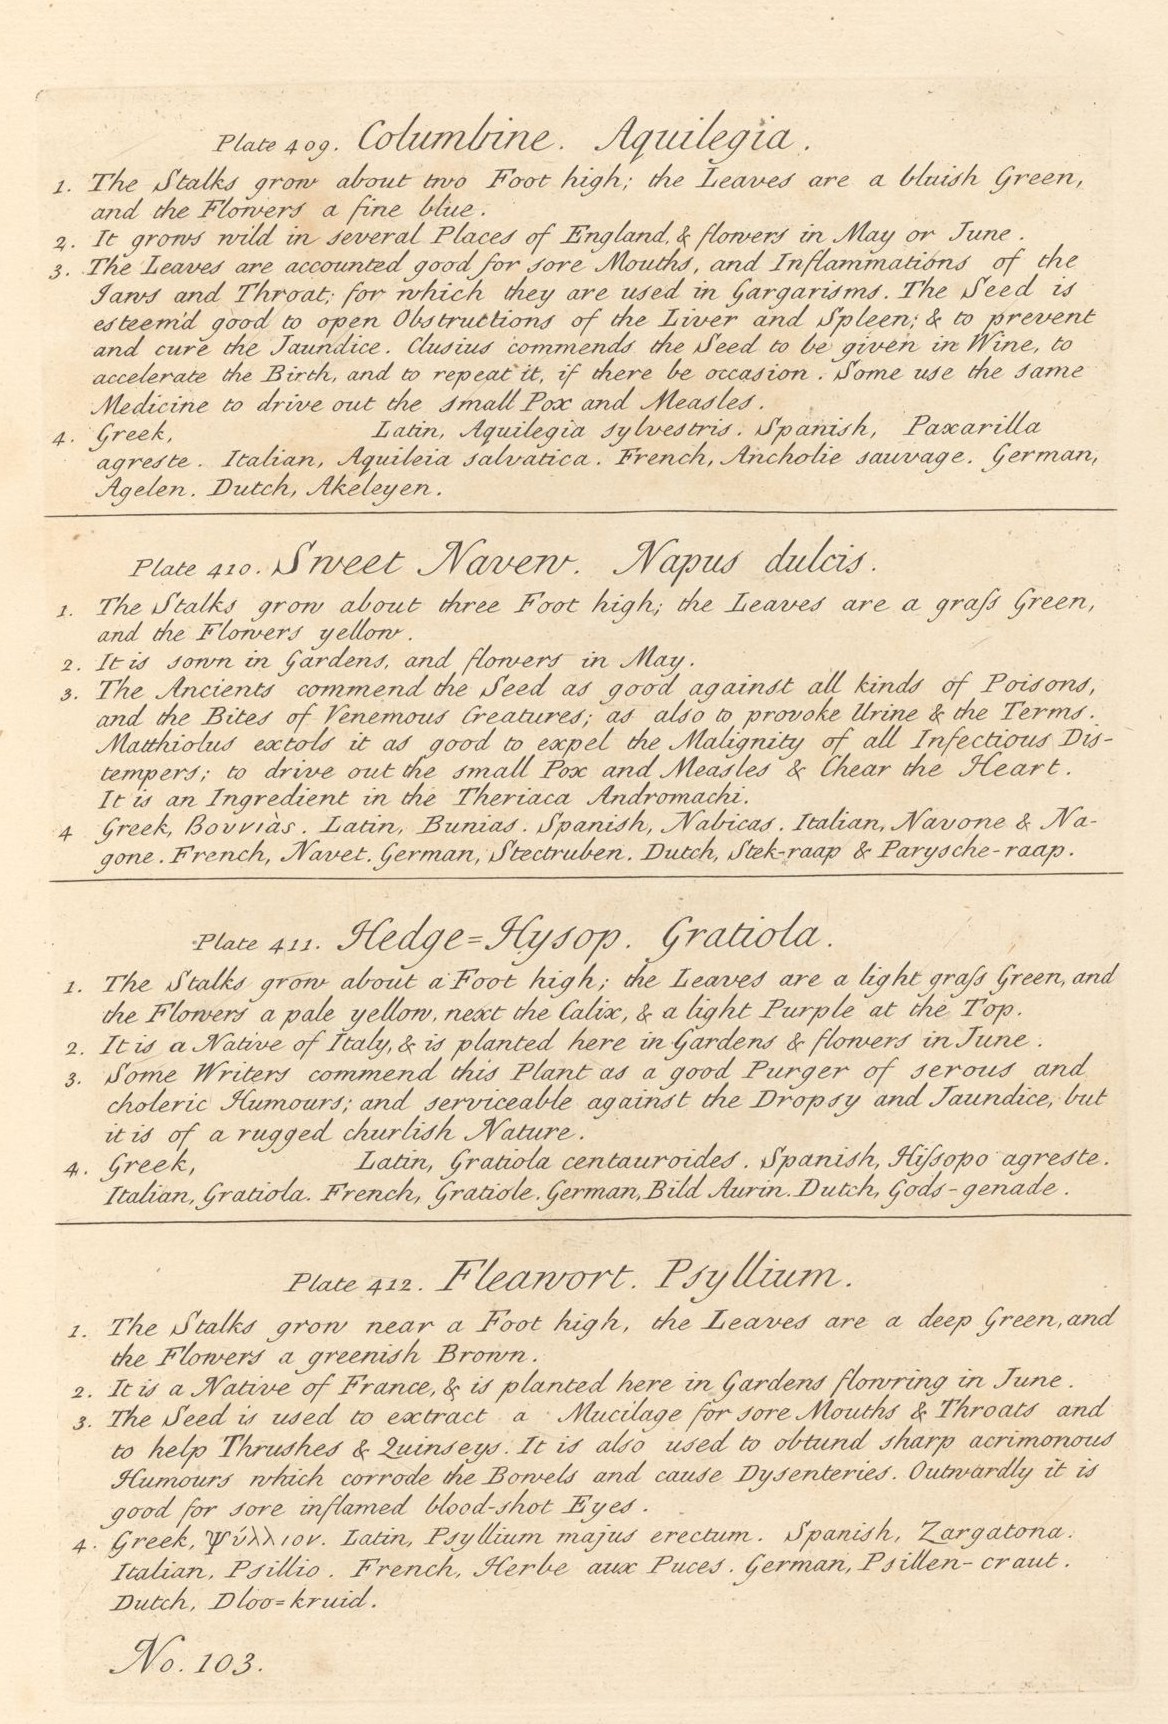 Plate 409. Columbine. Aquilegia.
1. The Stalks grow about two Foot high; the Leaves are a bluish Green,
and the Flowers a fine blue.
2. It grows wild in several Places of England, & flowers in May or June.
3. The Leaves are accounted good for sore Mouths, and Inflammations of the
Jaws and Throat; for which they are used in Gargarisms. The Seed is
esteem'd good to open Obstructions of the Liver and Spleen; & to prevent
and cure the Jaundice. Clusius commends the Seed to be given in Wine, to
accelerate the Birth, and to repeat it, if there be occasion. Some use the same
Medicine to drive out the small Pox and Measles.
4. Greek, Latin, Aquilegia sylvestris. Spanish, Paxarilla
agreste. Italian, Aquileia salvatica. French, Ancholie sauvage. German,
Agelen. Dutch, Akeleyen.
Plate 410. Sweet Navew. Napus dulcis.
1. The Stalks grow about three Foot high; the Leaves are a graſs Green,
and the Flowers yellow.
2. It is sown in Gardens, and flowers in May.
3. The Ancients commend the Seed as good against all kinds of Poisons,
and the Bites of Venemous Creatures; as also to provoke Urine & the Terms.
Matthiolus extols it as good to expel the Malignity of all Infectious Dis-
tempers; to drive out the small Pox and Measles & Chear the Heart.
It is an Ingredient in the Theriaca Andromachi.
4 Greek, Βουνιὰς. Latin, Bunias. Spanish, Nabicas. Italian, Navone & Na-
gone. French, Navet. German, Stectruben. Dutch, Stek-raap & Parysche-raap.
Plate 411. Hedge=Hysop. Gratiola.
1. The Stalks grow about a Foot high; the Leaves are a light graſs Green, and
the Flowers a pale yellow, next the Calix, & a light Purple at the Top.
2. It is a Native of Italy, & is planted here in Gardens & flowers in June.
3. Some Writers commend this Plant as a good Purger of serous and
choleric Humours; and serviceable against the Dropsy and Jaundice, but
it is of a rugged churlish Nature.
4. Greek, Latin, Gratiola centauroides. Spanish, Hiſsopo agreste.
Italian, Gratiola. French, Gratiole. German, Bild Aurin. Dutch, Gods-genade.
Plate 412. Fleawort. Psyllium.
1. The Stalks grow near a Foot high, the Leaves are a deep Green, and
the Flowers a greenish Brown.
2. It is a Native of France, & is planted here in Gardens flowring in June.
3. The Seed is used to extract a Mucilage for sore Mouths & Throats and
to help Thrushes & Quinseys. It is also used to obtund sharp acrimonous
Humours which corrode the Bowels and cause Dysenteries. Outwardly it is
good for sore inflamed blood-shot Eyes.
4. Greek, Ψύλλιον. Latin, Psyllium majus erectum. Spanish, Zargatona.
Italian, Psillio. French, Herbe aux Puces. German, Psillen-craut.
Dutch, Dloo=kruid.
No. 103.